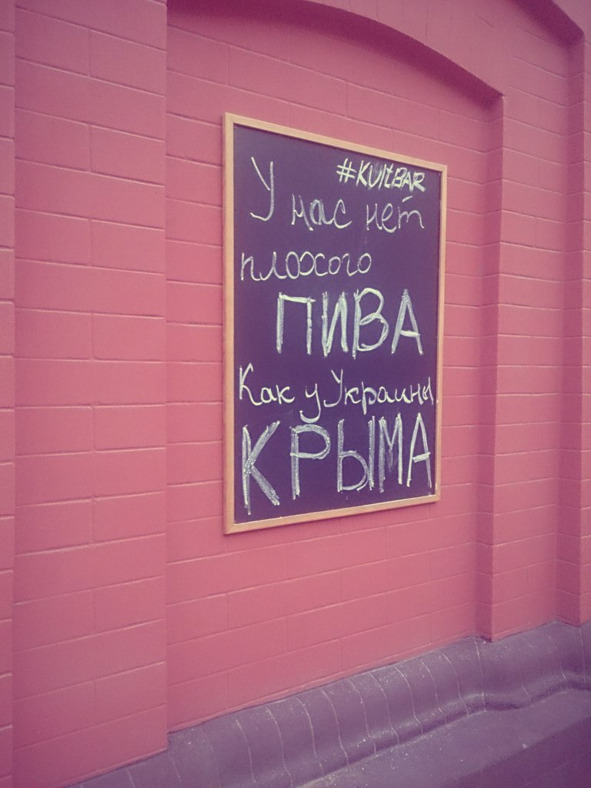 #KULTBAR
У нас нет
плохого
ПИВА
Как у Украины
КРЫМА